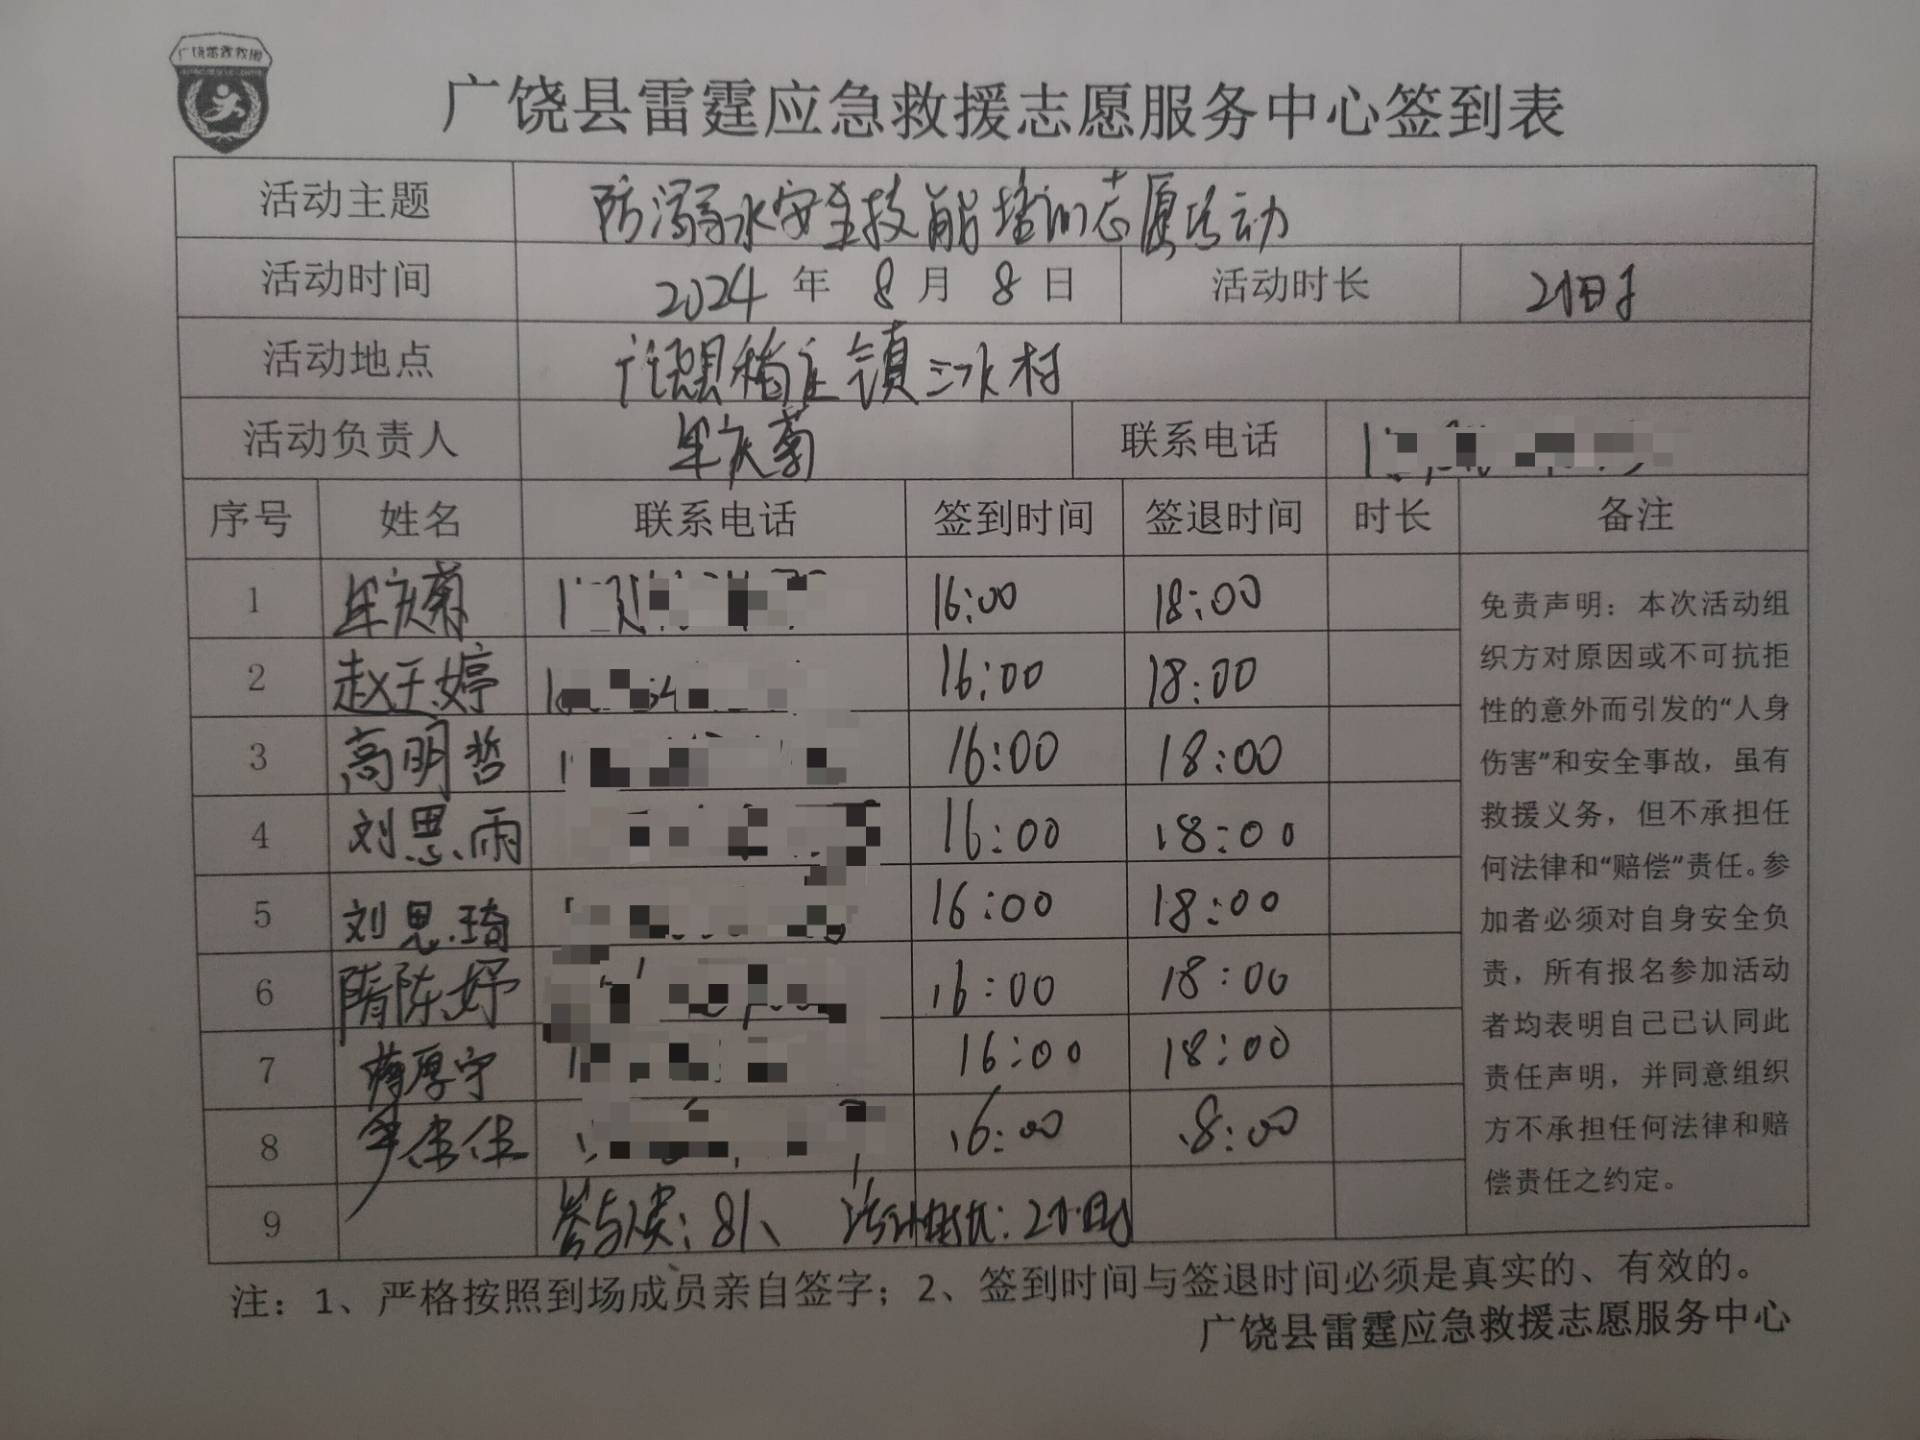 广饶县雷霆应急救援志愿服务中心签到表
活动主题 防溺水安全技能培训志愿活动
活动时间 2024 年 8 月 8 日 活动时长 2小时
活动地点 广饶县稻庄镇三水村
活动负责人 牟庆菊 联系电话
序号 姓名 联系电话 签到时间 签退时间 时长 备注
1 牟庆菊 16:00 18:00
2 赵玉婷 16:00 18:00
3 高明哲 16:00 18:00
4 刘思雨 16:00 18:00
5 刘思琦 16:00 18:00
6 隋陈妤 16:00 18:00
7 蒋厚宁 16:00 18:00
8 16:00 18:00
9 参与人员:8人、 活动时长:2小时
免责声明：本次活动组
织方对原因或不可抗拒
性的意外而引发的“人身
伤害”和安全事故，虽有
救援义务，但不承担任
何法律和“赔偿”责任。参
加者必须对自身安全负
责，所有报名参加活动
者均表明自己已认同此
责任声明，并同意组织
方不承担任何法律和赔
偿责任之约定。
注：1、严格按照到场成员亲自签字；2、签到时间与签退时间必须是真实的、有效的。
广饶县雷霆应急救援志愿服务中心